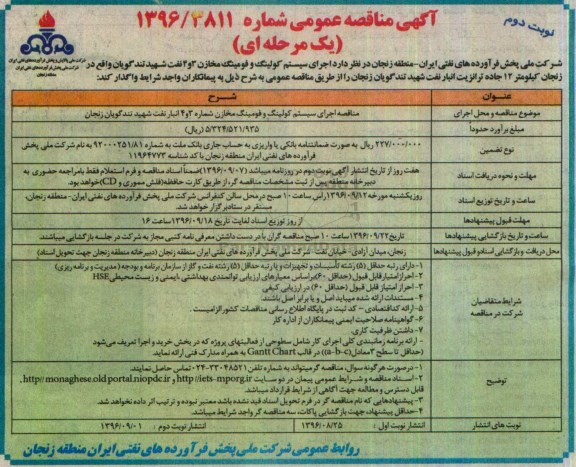 نوبت دوم
آگهی مناقصه عمومی شماره ۱۳۹۶/۳۸۱۱
(یک مرحله ای)
شرکت ملی پخش فرآورده های نفتی ایران-منطقه زنجان در نظر دارد اجرای سیستم کولینگ و فومینگ مخازن ۳و۴ نفت شهید تندگویان واقع در
زنجان کیلومتر ۱۲ جاده ترانزیت انبار نفت شهید تندگویان زنجان را از طریق مناقصه عمومی به شرح ذیل به پیمانکاران واجد شرایط واگذار کند:
عنوان
شرح
موضوع مناقصه و محل اجرای
مناقصه اجرای سیستم کولینگ و فومینگ مخازن شماره ۳و۴ انبار نفت شهید تندگویان زنجان
مبلغ برآورد حدوداً
۵/۳۲۴/۵۲۱/۹۳۵ (ریال)
نوع تضمین
۲۲۷/۰۰۰/۰۰۰ ریال به صورت ضمانتنامه بانکی یا واریزی به حساب جاری بانک ملت به شماره ۹۲۰۰۰۲۵۱/۸۱ به نام شرکت ملی پخش
فرآورده های نفتی ایران منطقه زنجان با کد شناسه ۱۱۹۶۴۷۷۳
مهلت و نحوه دریافت اسناد
هفت روز از تاریخ انتشار آگهی نوبت دوم در روزنامه میباشد (۱۳۹۶/۰۹/۰۷) ضمناً اسناد مناقصه و فرم استعلام فقط بامراجعه حضوری به
دبیرخانه منطقه پس از ثبت مشخصات مناقصه گر، از طریق کارت حافظه (فلش مموری و CD) خواهد بود.
ساعت و تاریخ توزیع اسناد
روز یکشنبه مورخه ۱۳۹۶/۰۹/۱۲ راس ساعت ۱۰ صبح در محل سالن کنفرانس شرکت ملی پخش فرآورده های نفتی ایران- منطقه زنجان،
مستقر در ستاد برگزار خواهد شد.
مهلت قبول پیشنهادها
از روز توزیع اسناد لغایت تاریخ ۱۳۹۶/۰۹/۱۸ ساعت ۱۶
ساعت و تاریخ بازگشایی پیشنهادها
تاریخ ۱۳۹۶/۰۹/۲۲ ساعت ۱۰ صبح مناقصه گران با در دست داشتن معرفی نامه کتبی مجاز به شرکت در جلسه بازگشایی میباشند.
محل دریافت و بازگشایی اسناد و قبول پیشنهادها
زنجان، میدان آزادی- خیابان نفت- شرکت ملی پخش فرآورده های نفتی ایران منطقه زنجان (دبیرخانه منطقه زنجان جهت تحویل اسناد)
شرایط متقاضیان
شرکت در مناقصه
۱-دارای رتبه حداقل (۵) رشته تأسیسات و تجهیزات و یا رتبه حداقل (۵) رشته نفت و گاز از سازمان برنامه و بودجه (مدیریت و برنامه ریزی)
۲-احراز امتیاز قابل قبول (حداقل ۶۰) براساس معیارهای ارزیابی توانمندی بهداشتی، ایمنی و زیست محیطی HSE
۳- احراز امتیاز قابل قبول (حداقل ۶۰) در ارزیابی کیفی
۴- مستندات ارائه شده میباید اصل و یا برابر اصل باشند.
۵- ارائه کد اقتصادی - کد ثبت در پایگاه اطلاع رسانی مناقصات کشور الزامیست.
۶- گواهینامه صلاحیت ایمنی پیمانکاران از اداره کار
۷- داشتن ظرفیت کاری.
- ارائه برنامه زمانبندی کلی اجرای کار شامل سطوحی از فعالیتهای پروژه که در بخش خرید و اجرا تعریف می‌شود
(حداقل تا سطح ۳ معادل (a-b-c)) در قالب Gantt Chart به همراه مدارک فنی ارائه نماید.
توضیح
۱- درصورت هرگونه سوال، مناقصه گر میتواند به شماره تلفن ۳۳۰۴۸۵۲۱-۰۲۴ تماس حاصل نمایند.
۲- اسناد مناقصه و شرایط عمومی پیمان در دو سایت http://iets-mporg.ir و http://monaghese.oldportal.niopdc.ir،
قابل دسترسی و مطالعه جهت آگاهی از شرایط قرارداد میباشد.
۳- پیشنهادهایی که نام مناقصه گر در فرم تحویل اسناد قید نشده باشد معتبر نبوده و ترتیب اثر داده نخواهد شد.
۴-حداقل پیشنهاد، جهت بازگشایی پاکات، سه مناقصه گر واجد شرایط میباشد.
نوبت های انتشار
انتشار نوبت اول : ۱۳۹۶/۰۸/۲۵
انتشار نوبت دوم : ۱۳۹۶/۰۹/۰۱
روابط عمومی شرکت ملی پخش فرآورده های نفتی ایران منطقه زنجان